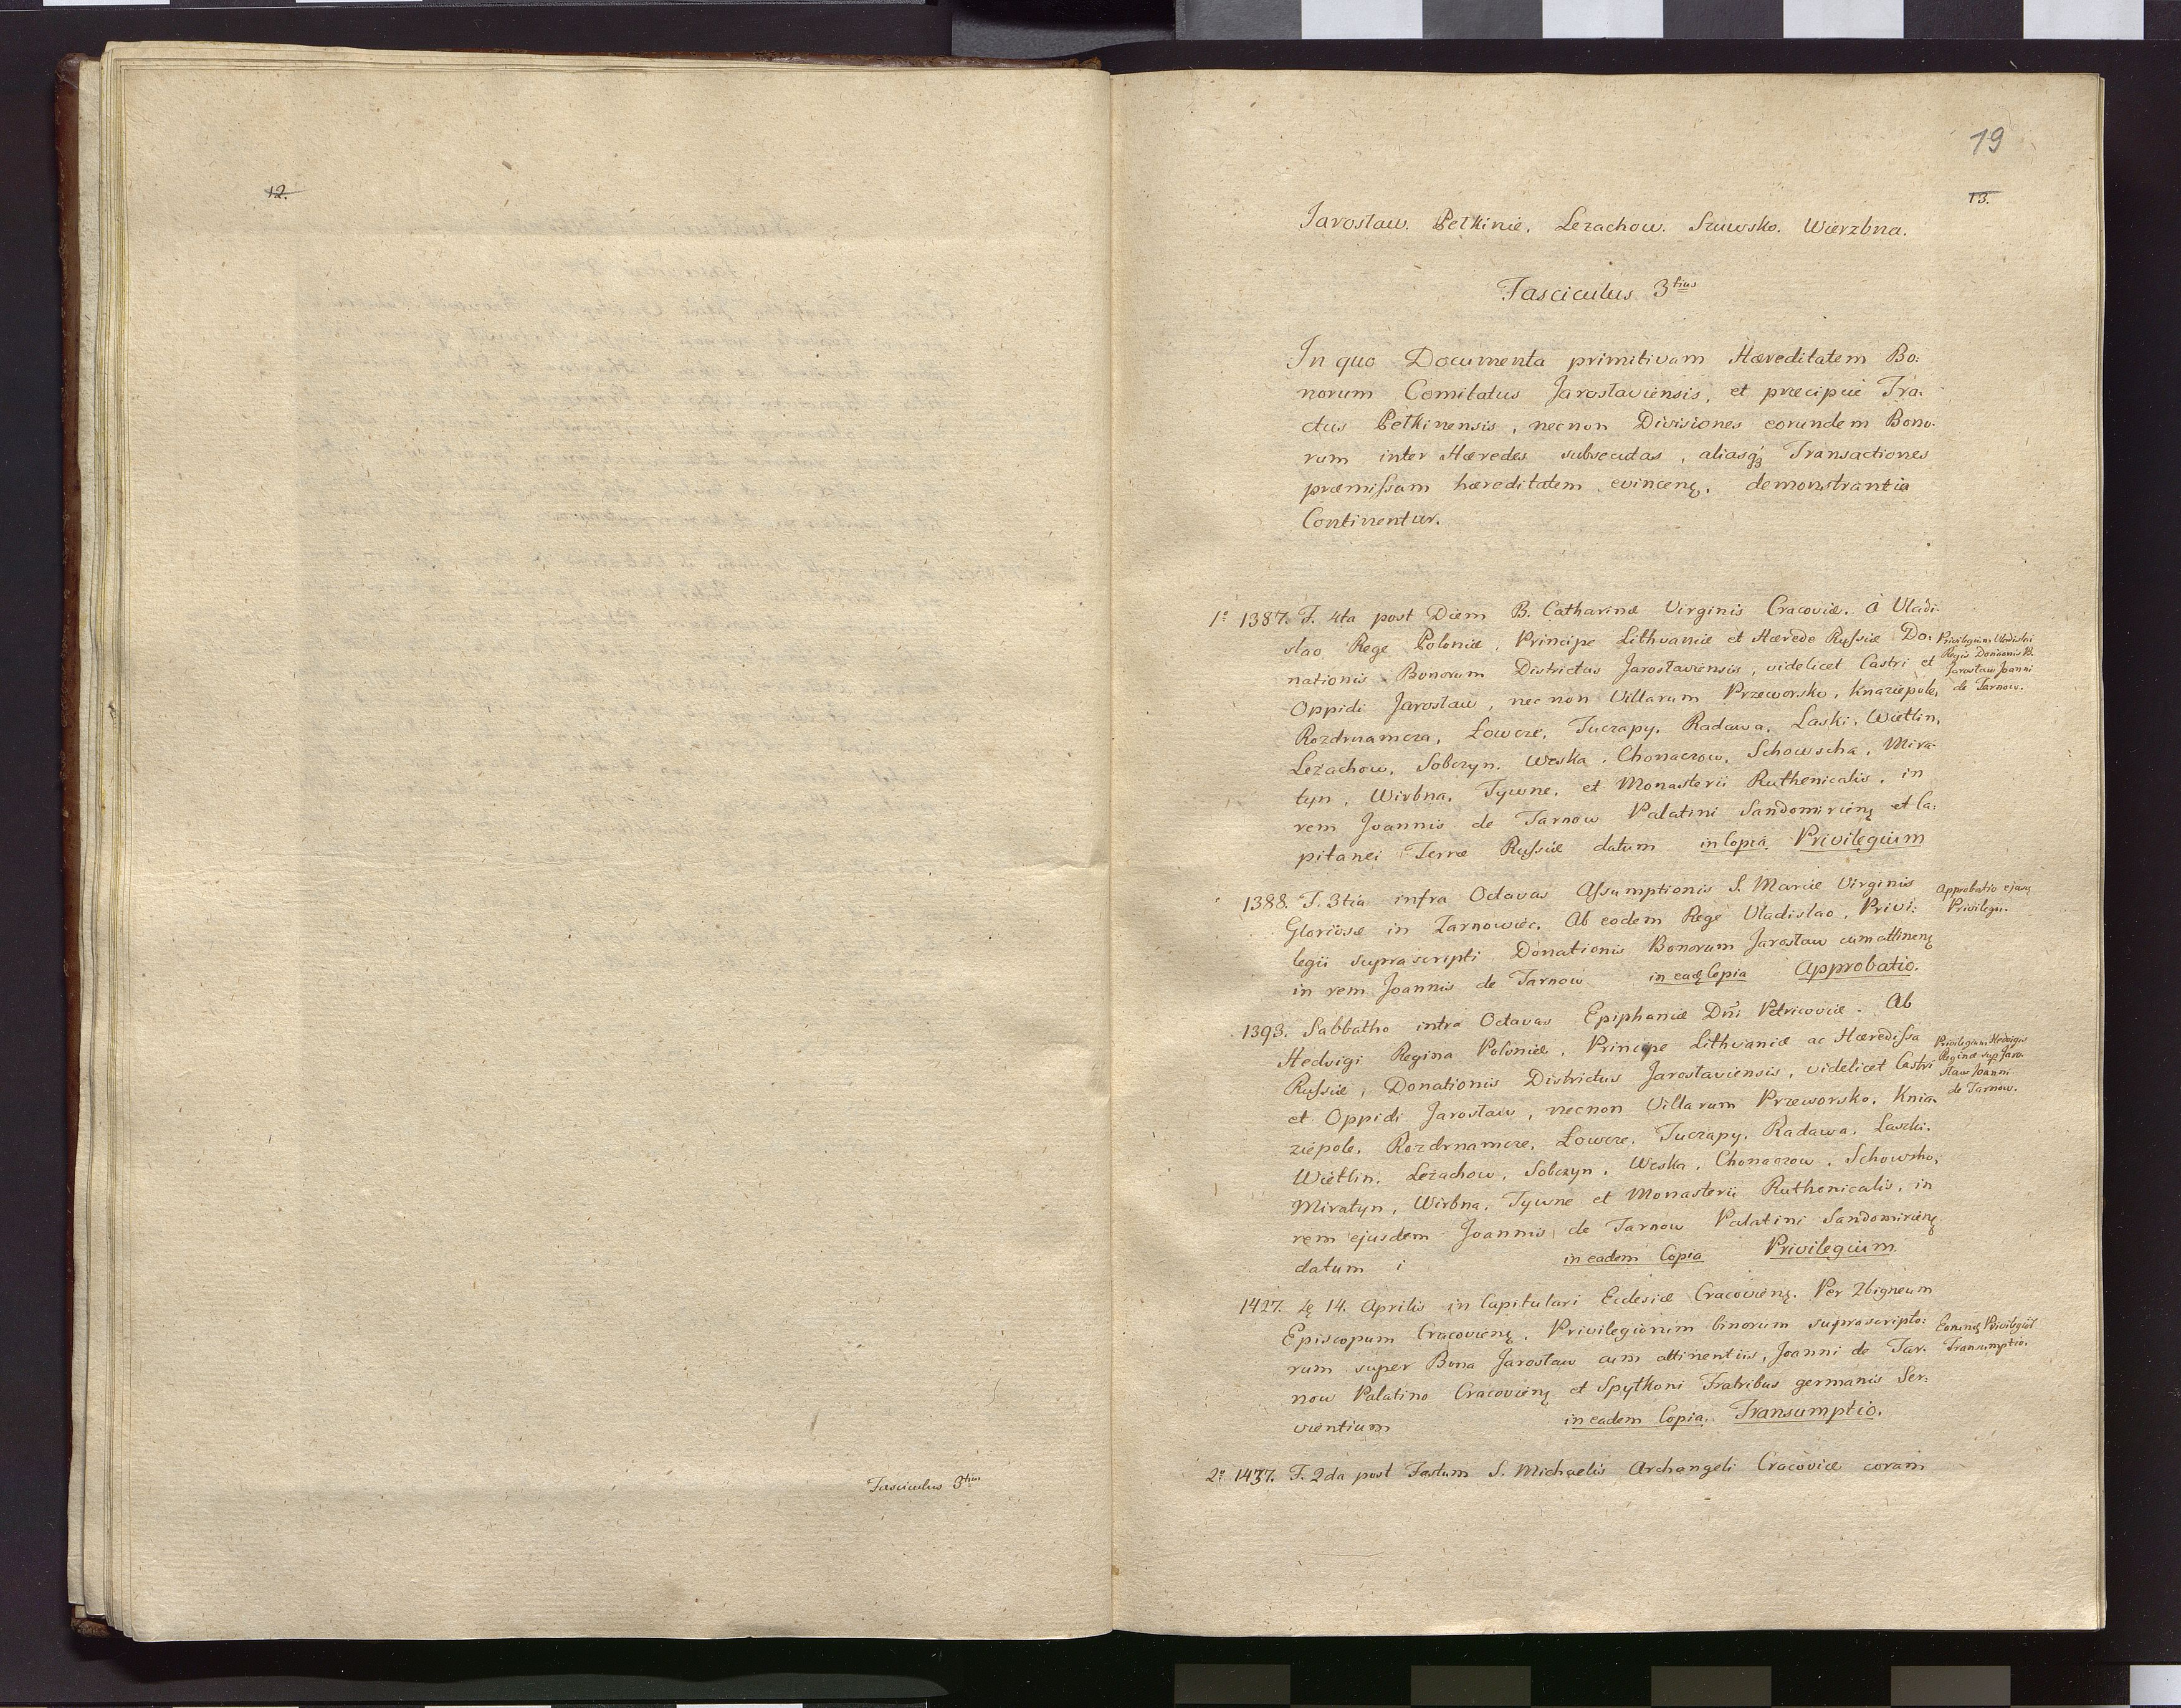 12.
Fasciculus 3tius
19
13.
Jarosław. Pełkinie. Lezachow. Szuwsko. Wierzbna.
Fasciculus 3tius
In quo Documenta primitivam Hæreditatem Bo:
norum Comitatus Jarosłaviensis, et præcipuè Tra:
ctus Pełkinensis, necnon Divisiones eorundem Bono:
rum inter Hæredes subsecutas, aliasqꝫ Transactiones
præmissam hæreditatem evincenę, demonstrantia
Continentur.
1º 1387. F. 4ta post Diem B. Catharinæ Virginis Cracoviæ. à Vladi-
slao Rege Poloniæ, Principe Lithvaniæ et Hærede Russiæ Do:
nationis Bonorum Districtus Jarosłaviensis, videlicet Castri et
Oppidi Jarosław, necnon Villarum Przeworsko, Knaziepole,
Rozdrnamcza, Łowcze, Tuczapy, Radawa, Laski, Wietlin,
Leżachow, Sobczyn, Weska, Chonaczow, Schowscha, Mira-
tyn, Wirbna, Tywne, et Monasterii Ruthenicalis, in
rem Joannis de Tarnow Palatini Sandomirienę et Ca:
pitanei Terræ Russiæ datum in Copia Privilegium
Privilegium Vladislai
Regis Donãonis B.
Jarosław Joanni
de Tarnow.
1388. F. 3tia infra Octavas Assumptionis S. Mariæ Virginis
Gloriosæ in Zarnowiec. Ab eodem Rege Vladislao, Privi:
legii suprascripti Donationis Bonorum Jarosław cum attinenę
in rem Joannis de Tarnow in eadę Copia Approbatio.
Approbatio ejusę
Privilegii.
1393. Sabbatho intra Octavas Epiphaniæ Dñi Petricoviæ. Ab
Hedvigi Regina Poloniæ, Principe Lithvaniæ ac Hæredissa
Russiæ, Donationis Districtus Jarosłaviensis, videlicet Castri
et Oppidi Jarosław, necnon Villarum Przeworsko, Knia-
ziepole, Rozdrnamcze, Łowcze, Tuczapy, Radawa, Laszki,
Wietlin, Leżachow, Sobczyn, Weska, Chonaczow, Schowsko,
Miratyn, Wirbna, Tywne et Monasterii Ruthenicalis, in
rem ejusdem Joannis de Tarnow Palatini Sandomirienę
datum in eadem Copia Privilegium.
Privilegium Hedvigis
Reginæ sup Jaro-
sław Joanni
de Tarnow.
1427. Dę 14. Aprilis in Capitulari Ecclesiæ Cracovienę. Per Zbigneum
Episcopum Cracovienę, Privilegiorum binorum suprascripto:
rum super Bona Jarosław cum attinentiis, Joanni de Tar:
now Palatino Cracovienę et Spytkoni Fratribus germanis Ser:
vientium in eadem Copia. Transumptio.
Transumptio.
2º 1437. F. 2da post Festum S. Michaelis Archangeli Cracoviæ coram